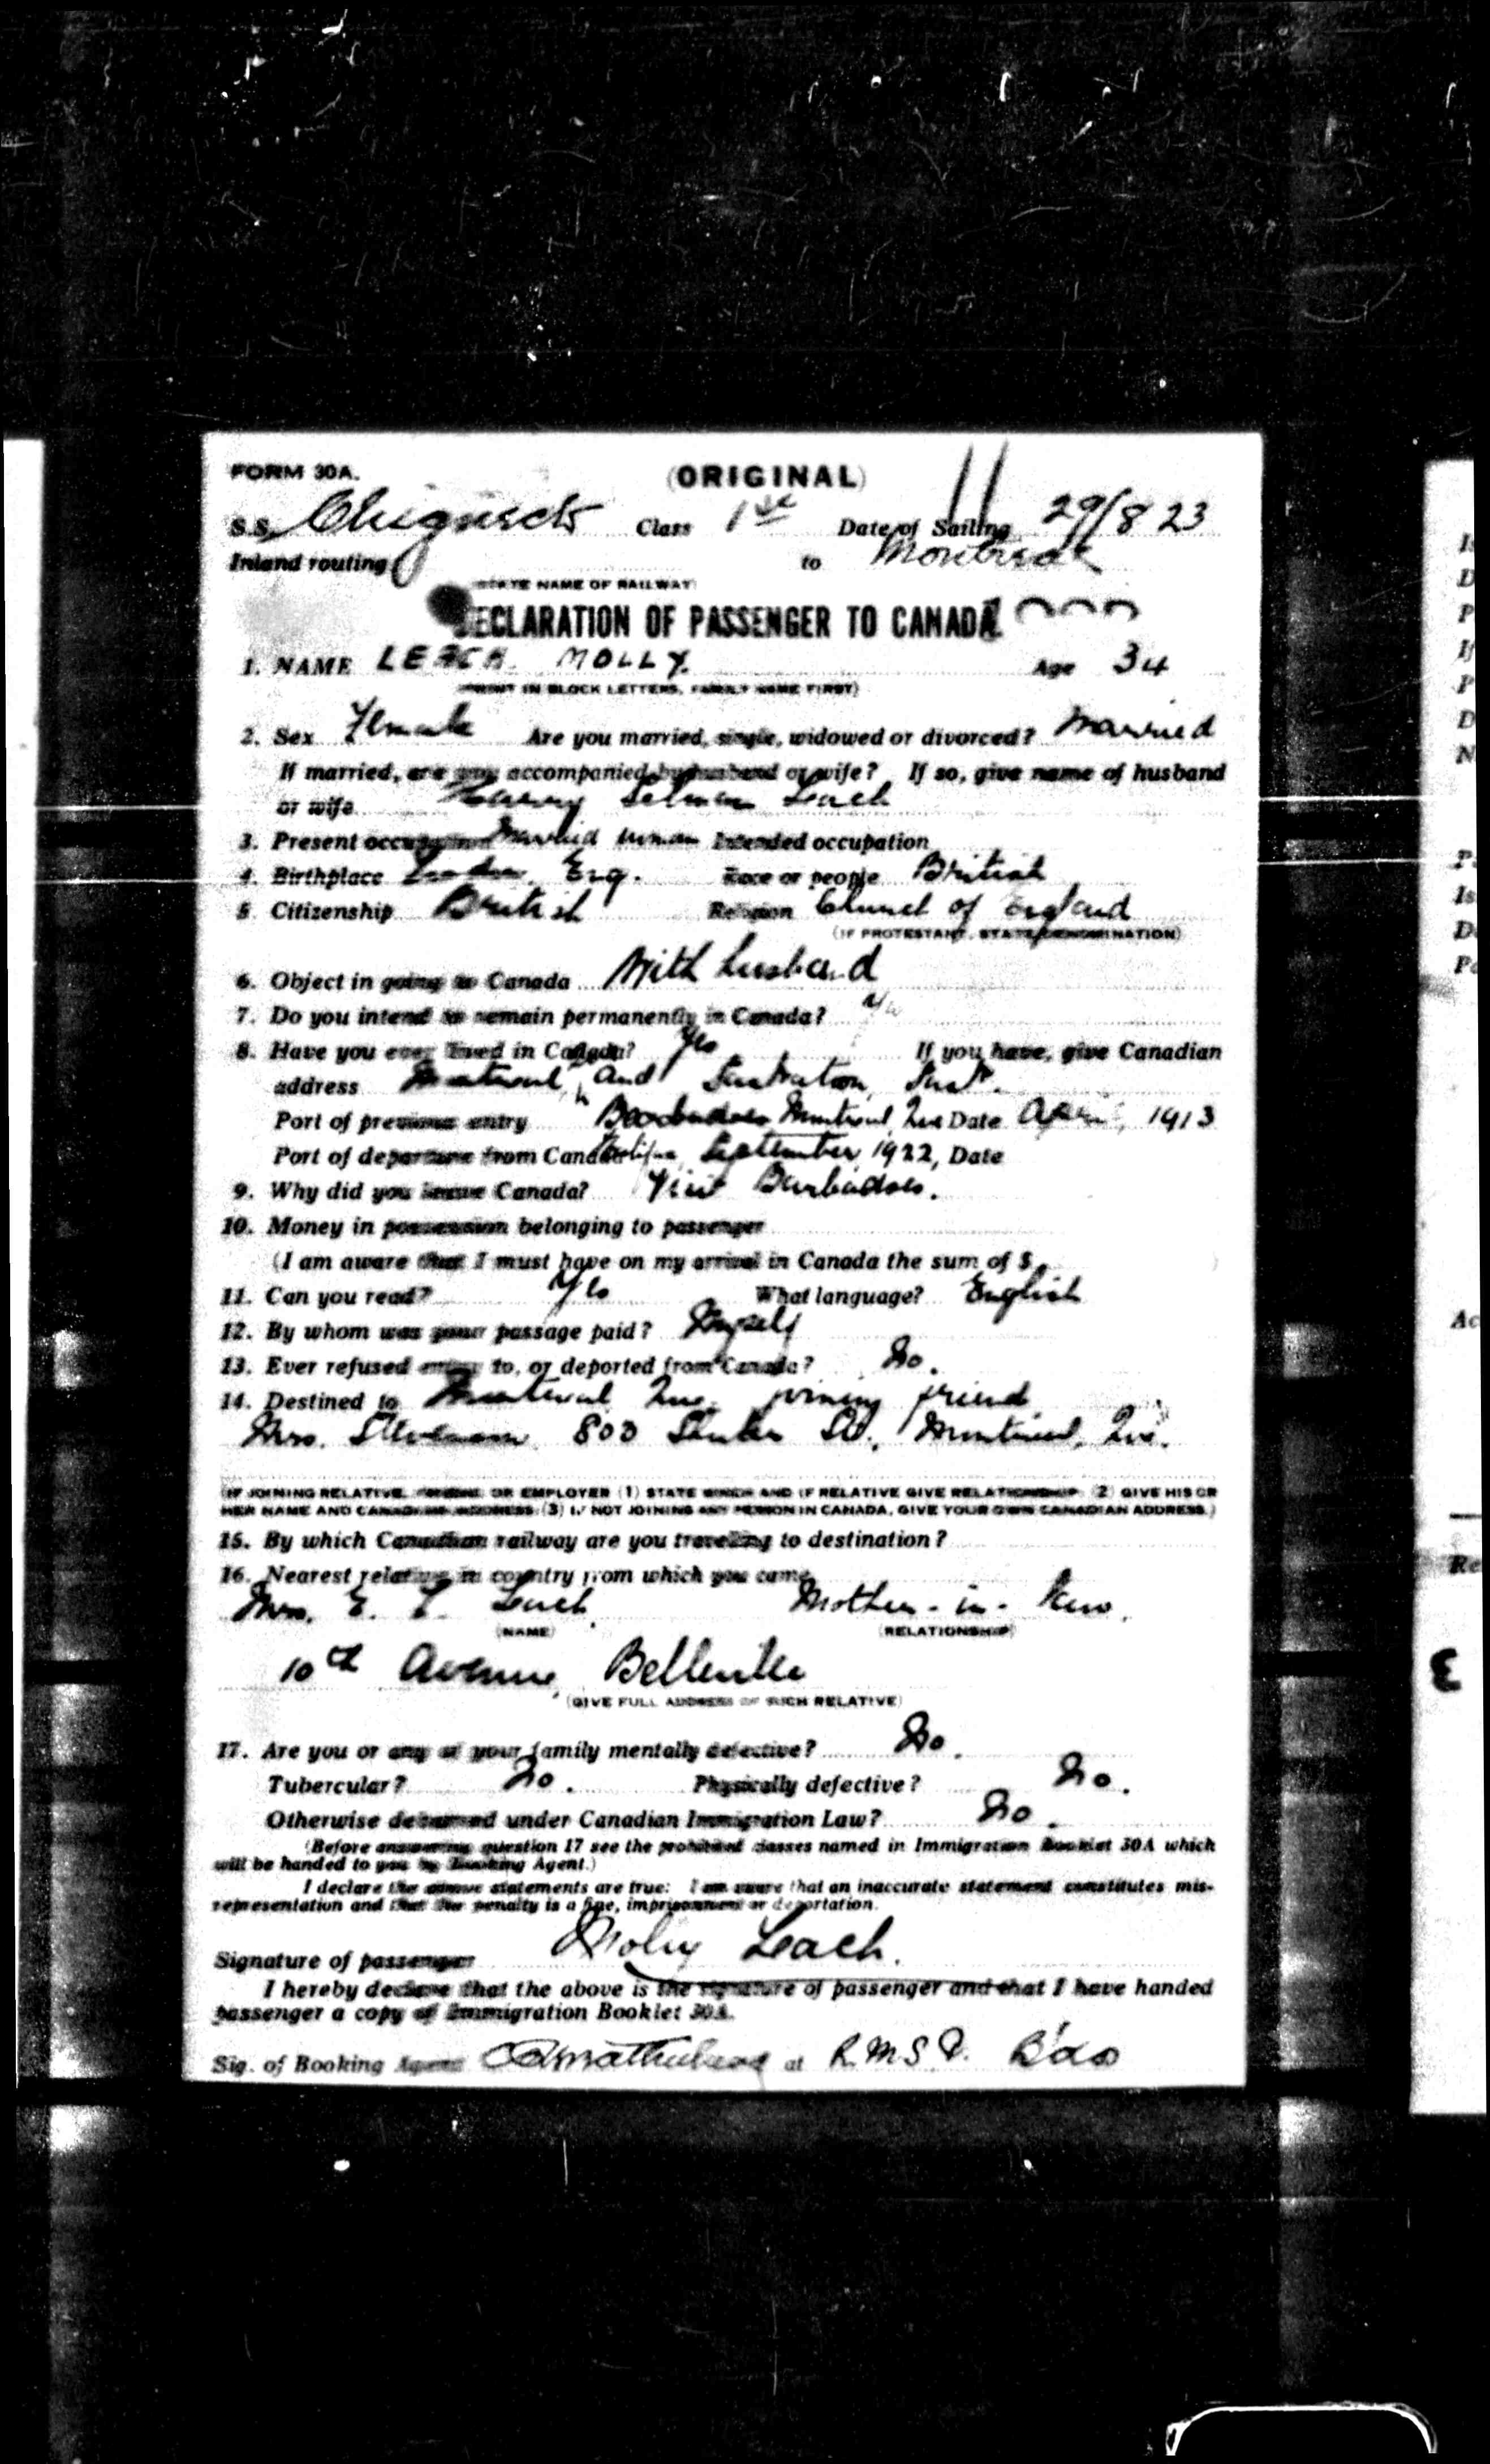 FORM 30A. (ORIGINAL)
S.S. Chignecto Class 1st Date of Sailing 29/8 23
Inland routing to Montreal
(STATE NAME OF RAILWAY)
DECLARATION OF PASSENGER TO CANADA
1. NAME LEACH MOLLY. Age 34
(PRINT IN BLOCK LETTERS, FAMILY NAME FIRST)
2. Sex Female Are you married, single, widowed or divorced? Married
If married, are you accompanied by husband or wife? If so, give name of husband
or wife Harry Leach
3. Present occupation Married woman Intended occupation
4. Birthplace London, Eng. Race or people British
5. Citizenship British Religion Church of England
(IF PROTESTANT, STATE DENOMINATION)
6. Object in going to Canada With husband
7. Do you intend to remain permanently in Canada?
8. Have you ever lived in Canada? Yes If you have, give Canadian
address Montreal, and Saskatoon, Sask.
Port of previous entry Barbados Montreal, Que Date April, 1913
Port of departure from Canada Halifax, September 1922, Date
9. Why did you leave Canada? Visit Barbados.
10. Money in possession belonging to passenger
(I am aware that I must have on my arrival in Canada the sum of $
11. Can you read? Yes What language? English
12. By whom was your passage paid? Myself
13. Ever refused entry to, or deported from Canada? No.
14. Destined to Montreal Que. joining friend
Mrs. Stevenson 803 St., Montreal, Que.
(IF JOINING RELATIVE, FRIEND, OR EMPLOYER (1) STATE WHICH AND IF RELATIVE GIVE RELATIONSHIP. (2) GIVE HIS OR
HER NAME AND CANADIAN ADDRESS. (3) IF NOT JOINING ANY PERSON IN CANADA, GIVE YOUR OWN CANADIAN ADDRESS.)
15. By which Canadian railway are you traveling to destination?
16. Nearest relative in country from which you came
Mrs. E. Leach Mother-in-law.
(NAME) (RELATIONSHIP)
10th Avenue, Belleville
(GIVE FULL ADDRESS OF SUCH RELATIVE)
17. Are you or any of your family mentally defective? No.
Tubercular? No. Physically defective? No.
Otherwise debarred under Canadian Immigration Law? No.
(Before answering question 17 see the prohibited classes named in Immigration Booklet 30A which
will be handed to you by Booking Agent.)
I declare the above statements are true: I am aware that an inaccurate statement constitutes mis-
representation and that the penalty is a fine, imprisonment or deportation.
Signature of passenger Molly Leach.
I hereby declare that the above is the signature of passenger and that I have handed
passenger a copy of Immigration Booklet 30A.
Sig. of Booking Agent at R.M.S.P. B'dos